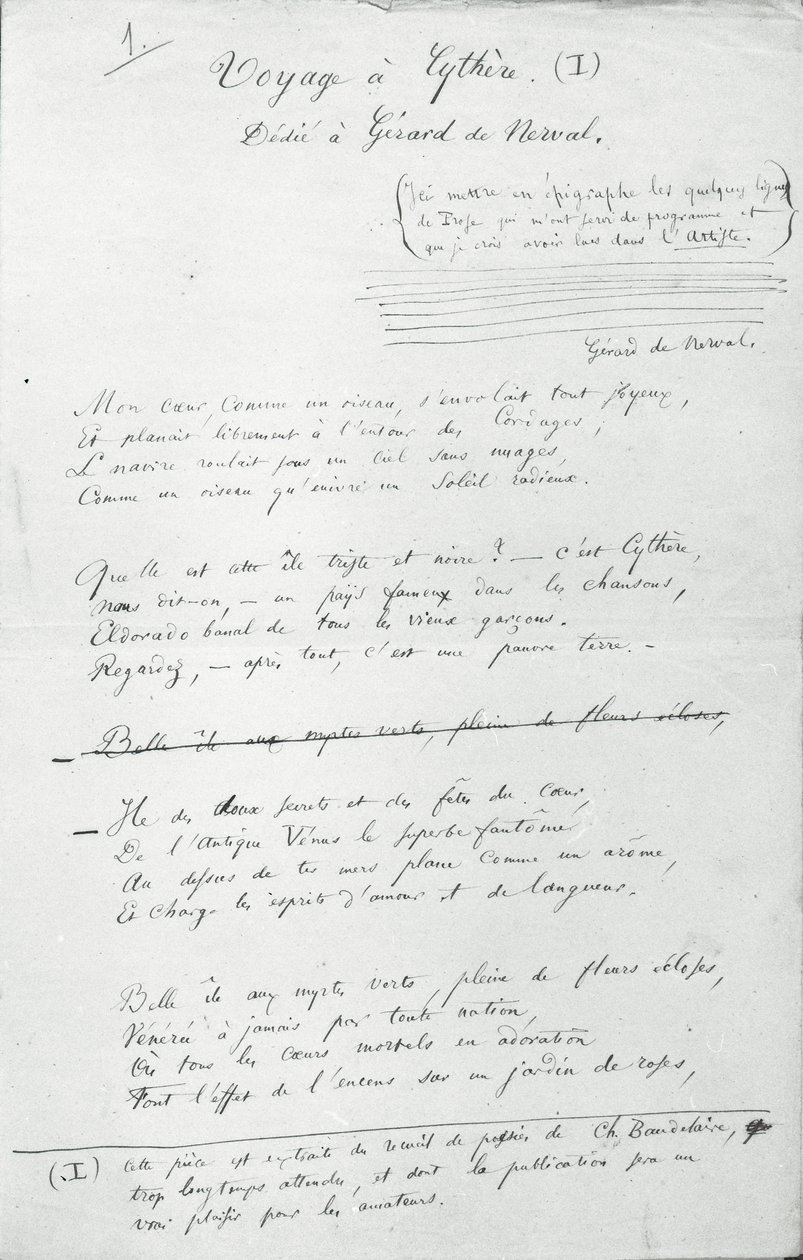 1.
Voyage à Cythère. (I)
Dédié à Gérard de Nerval.
(Ici mettre en épigraphe les quelques lignes
de Prose qui m'ont servi de programme et
que je crois avoir lues dans l'Artiste.)
Gérard de Nerval.
Mon cœur, comme un oiseau, s'envolait tout joyeux,
Et planait librement à l'entour des Cordages ;
Le navire roulait sous un Ciel sans nuages,
Comme un oiseau qu'enivre un Soleil radieux.
Quelle est cette île triste et noire ? — c'est Cythère,
nous dit-on, — un pays fameux dans les chansons,
Eldorado banal de tous les vieux garçons.
Regardez, — après tout, c'est une pauvre terre. —
— Belle île aux myrtes verts, pleine de fleurs écloses,
— Ile des doux secrets et des fêtes du Cœur,
De l'Antique Vénus le superbe fantôme
Au dessus de tes mers plane Comme un arôme,
Et charge les esprits d'amour et de langueur.
Belle île aux myrtes verts, pleine de fleurs écloses,
Vénérée à jamais par toute nation,
Où tous les Cœurs mortels en adoration
Font l'effet de l'encens sur un jardin de roses,
(I) Cette pièce est extraite du recueil de poésies de Ch. Baudelaire,
trop longtemps attendu, et dont la publication sera un
vrai plaisir pour les amateurs.